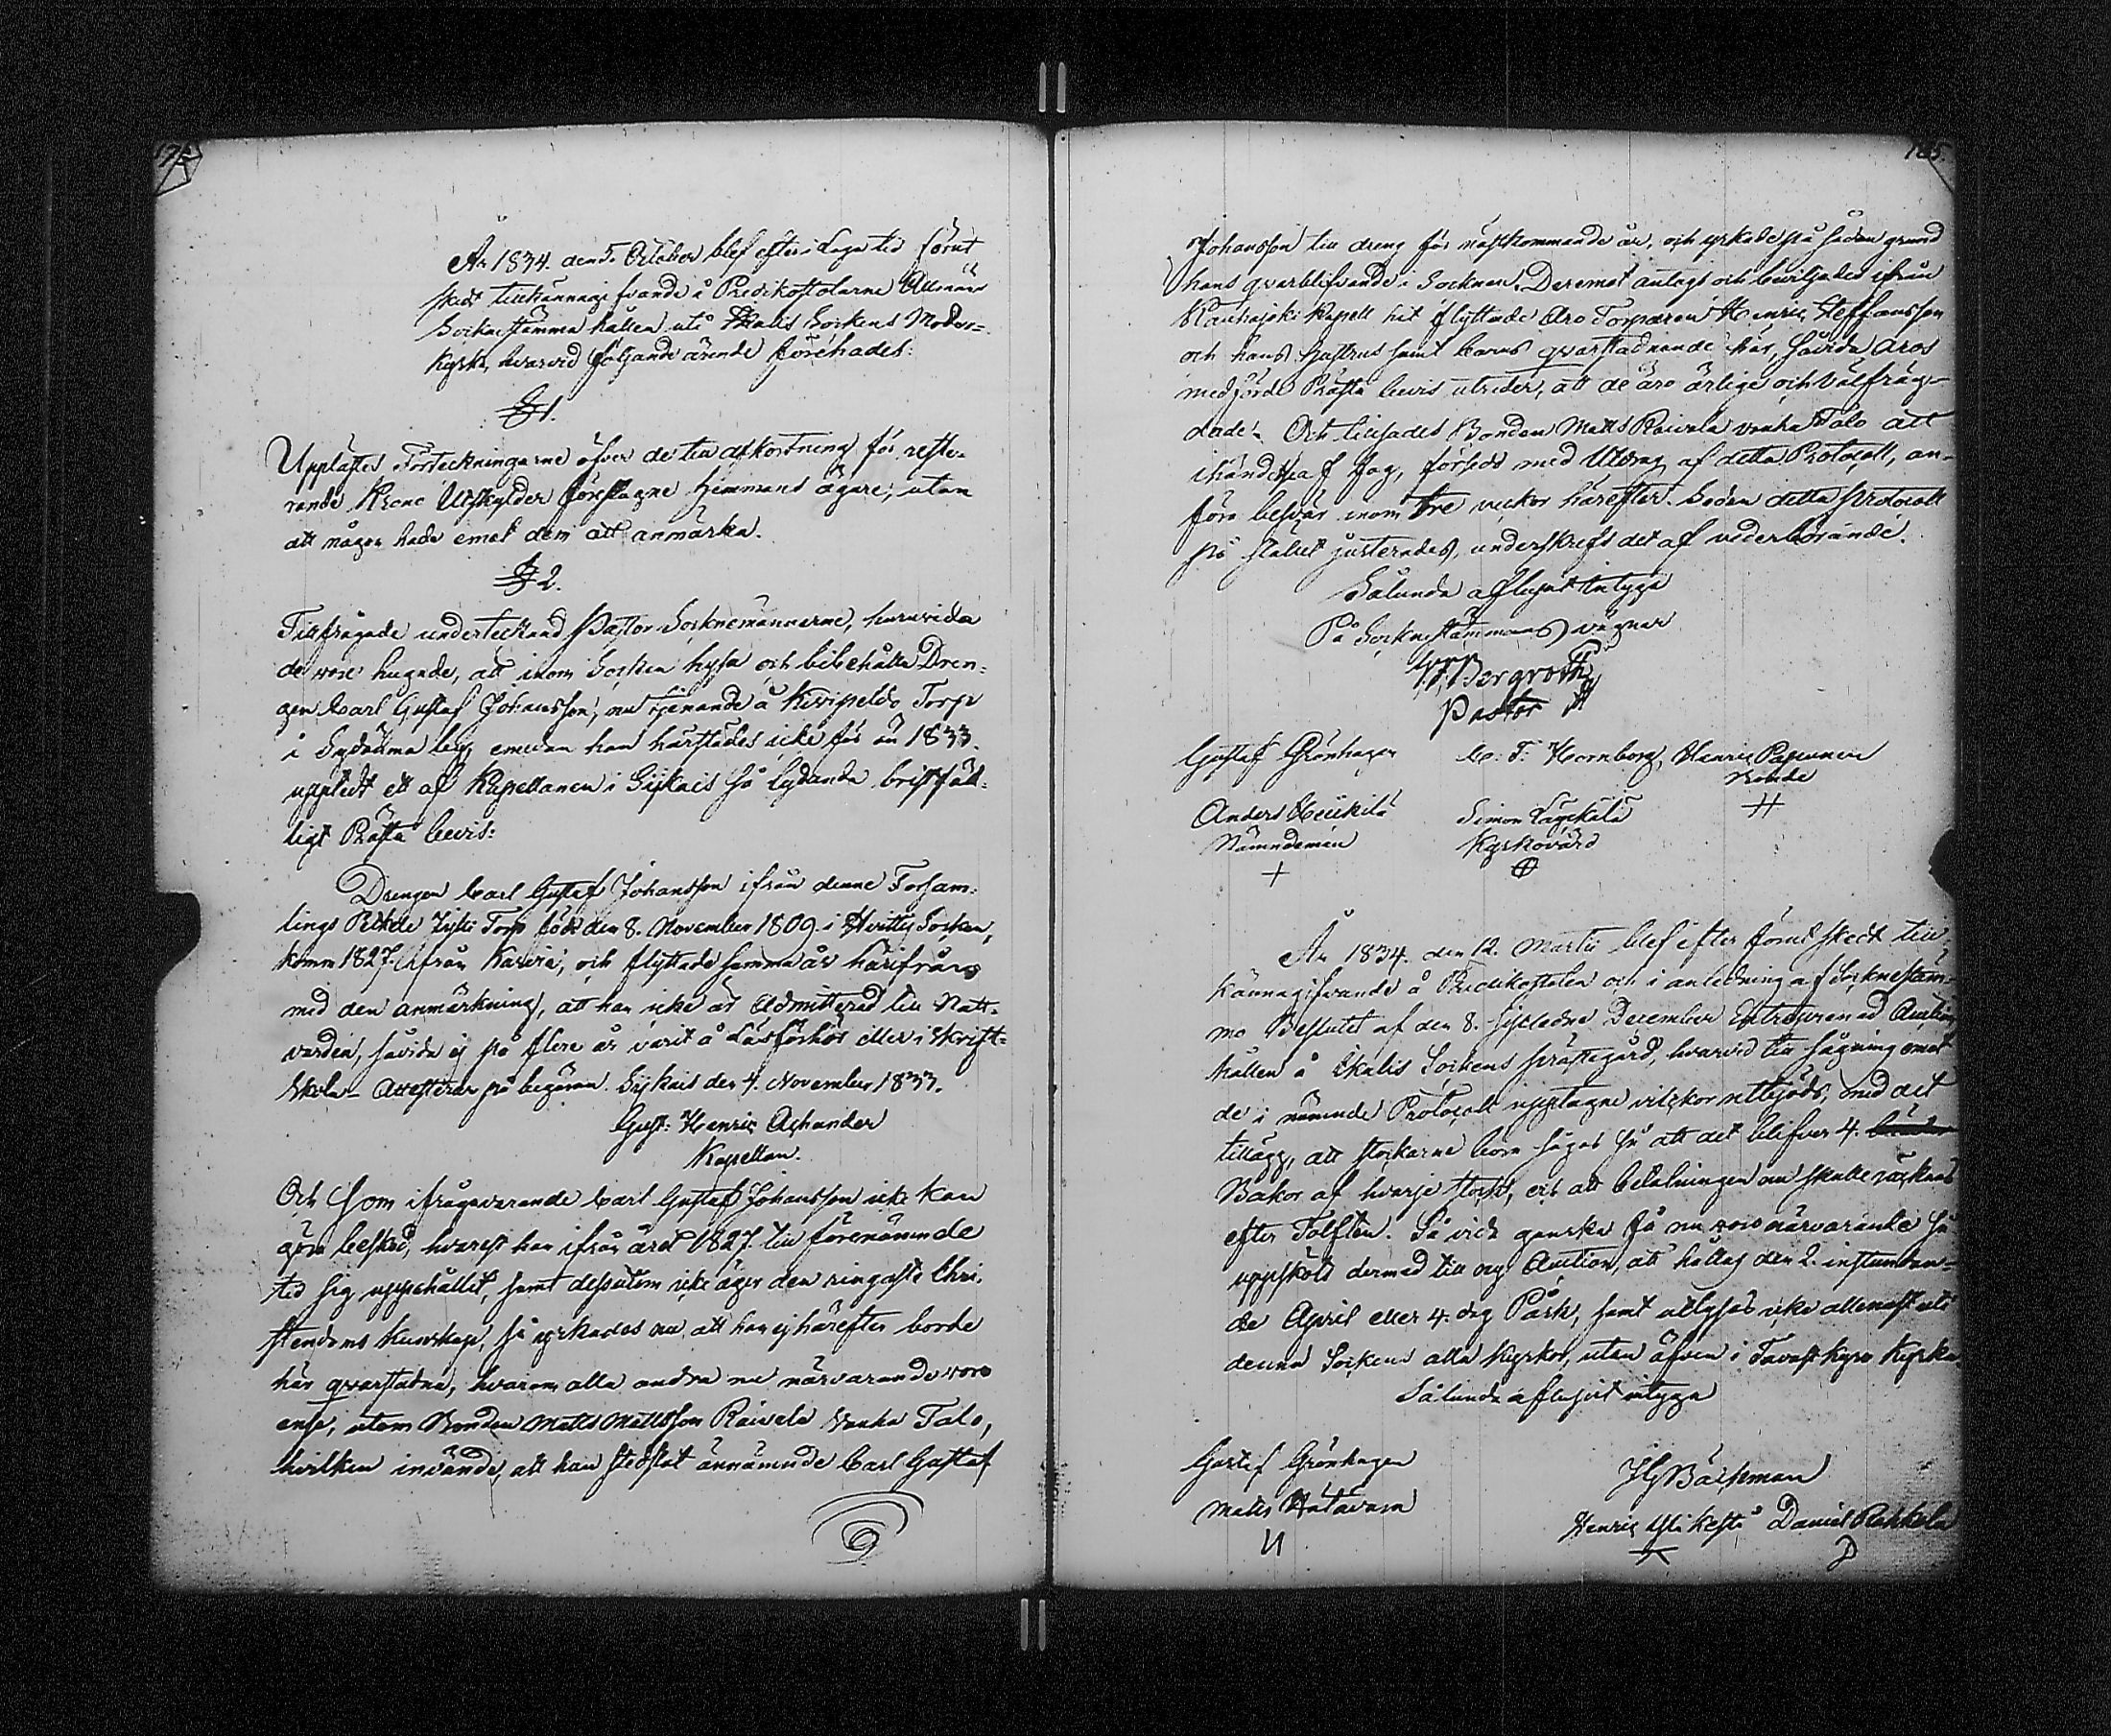 År 1834. den 5. October blef efter i Laga tid förut
skedt tillkännagifvande å Predikostolarne Allmän
Sockne stämma hållen uti Ikalis Sockens Moder-
kyrka, hvarvid följande ärende förehades:
§ 1.
Upplästes Förteckningarne öfver de till afkortning för reste-
rande Krono Utskylder föreslagne Hemmans ägare, utan
att någon hade emot dem att anmärka.
§ 2.
Tillfrågade undertecknad Pastor Socknemännerne, huruvida
de voro hugade, att inom Socken hysa och bibehålla Dren-
gen Carl Gustaf Johansson, nu tjenande å Torp
i Sydänma by, emedan han härstädes icke för än 1833.
uppledt ett af Kapellanen i Sijkais så lydande bristfäl-
ligt Präste bevis:
Drengen Carl Gustaf Johansson ifrån denne Försam-
lings Torp född den 8. November 1809. i Hvittis Socken,
komm 1827. ifrån , och flyttade samma år härifrån
med den anmärkning, att han icke är Admitterad till Natt-
varden, såvida ej på flere år varit å Läsförhör eller i Skrift-
skola – Attesterar på begäran. Sijkais den 4. November 1833.
Gust: Henric Achander
Kapellan.
Och som ifrågavarande Carl Gustaf Johansson icke kan
göra besked, hvarest han ifrån året 1827. till förenämnde
tid sig uppehållit, samt dessutom icke äger den ringaste Chri-
stendoms kunskap, så yrkades nu, att han ej härefter borde
här qvarstadna, hvarom alla andra nu närvarande voro
ense, utom Bonden Matts Mattsson Raivala Vanha Talo,
hvilken invände, att han stedslat ännämnde Carl Gustaf
185.
Johansson till dreng för nästkommande år, och yrkade på sådan grund
hans qvarblifvande i Socknen. Deremot antogs och beviljades ifrån
Kapell hit flyttade Aro Torparen Henric Steffansson
och hans Hustrus samt barns qvarstadnande här, såvida deras
medförde Präste bevis utvisar, att de äro ärlige och välfräg-
dade. Och tillsades Bonden Matts Raivala vanha Talo att
ihändelse af fog, försedt med Utdrag af detta Protocoll, an-
föra besvär inom tre veckor härefter. Sedan detta protocoll
på stället justerades, underskrefs det af vederbörande.
Sålunda aflupit intyga
På Sockne stämmans vägnar
Bergroth
Pastor
Gustaf Grönhagen C. F. Hornborg, Henric Papunen
Bonde
Anders Heickilä Simon
Nämndeman Kyrkovärd
År 1834. den 12. Martii blef efter förut skedt till-
kännagifvande å Predikostolen och i anledning af Socknestäm-
mo Beslutet af den 8. sistledne December Entreprenad Auction
hållen å Ikalis Sockens prästegård, hvarvid till sågning emot
de i nämnde Protocoll upptagne vilckor utbjöds, med det
tillägg, att stockarne böra sågas så att det blifver 4.
Bakor af hvarje stock, och att betalningen nu skulle räcknas
efter Tolften. Så vida ganska få nu voro närvarande så
uppskots dermed till ny Auction, att hållas den 2. instundan-
de April eller 4. dag Påsk, samt utlyses icke allenast uti
denna Sockens alla Kyrkor, utan äfven i Tavastkyro Kyrka.
Sålunda aflupit intyga
Gustaf Grönhagen
Bäckman
Matts Hatavara
Henric Daniel Rahkola